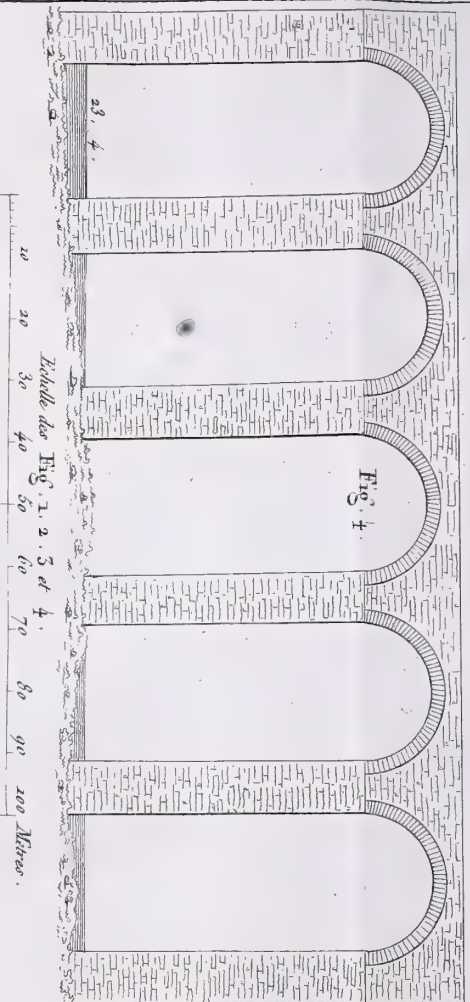 Fig. 4.
23. 4.
Echelle des Fig. 1. 2. 3 et 4.
10 20 30 40 50 60 70 80 90 100 Mètres.